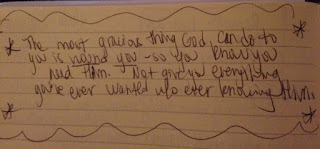 * The most gracious thing God can do to *
you is wound you - so you know you
need Him. Not give you everything
you've ever wanted w/o ever knowing Him.
* *